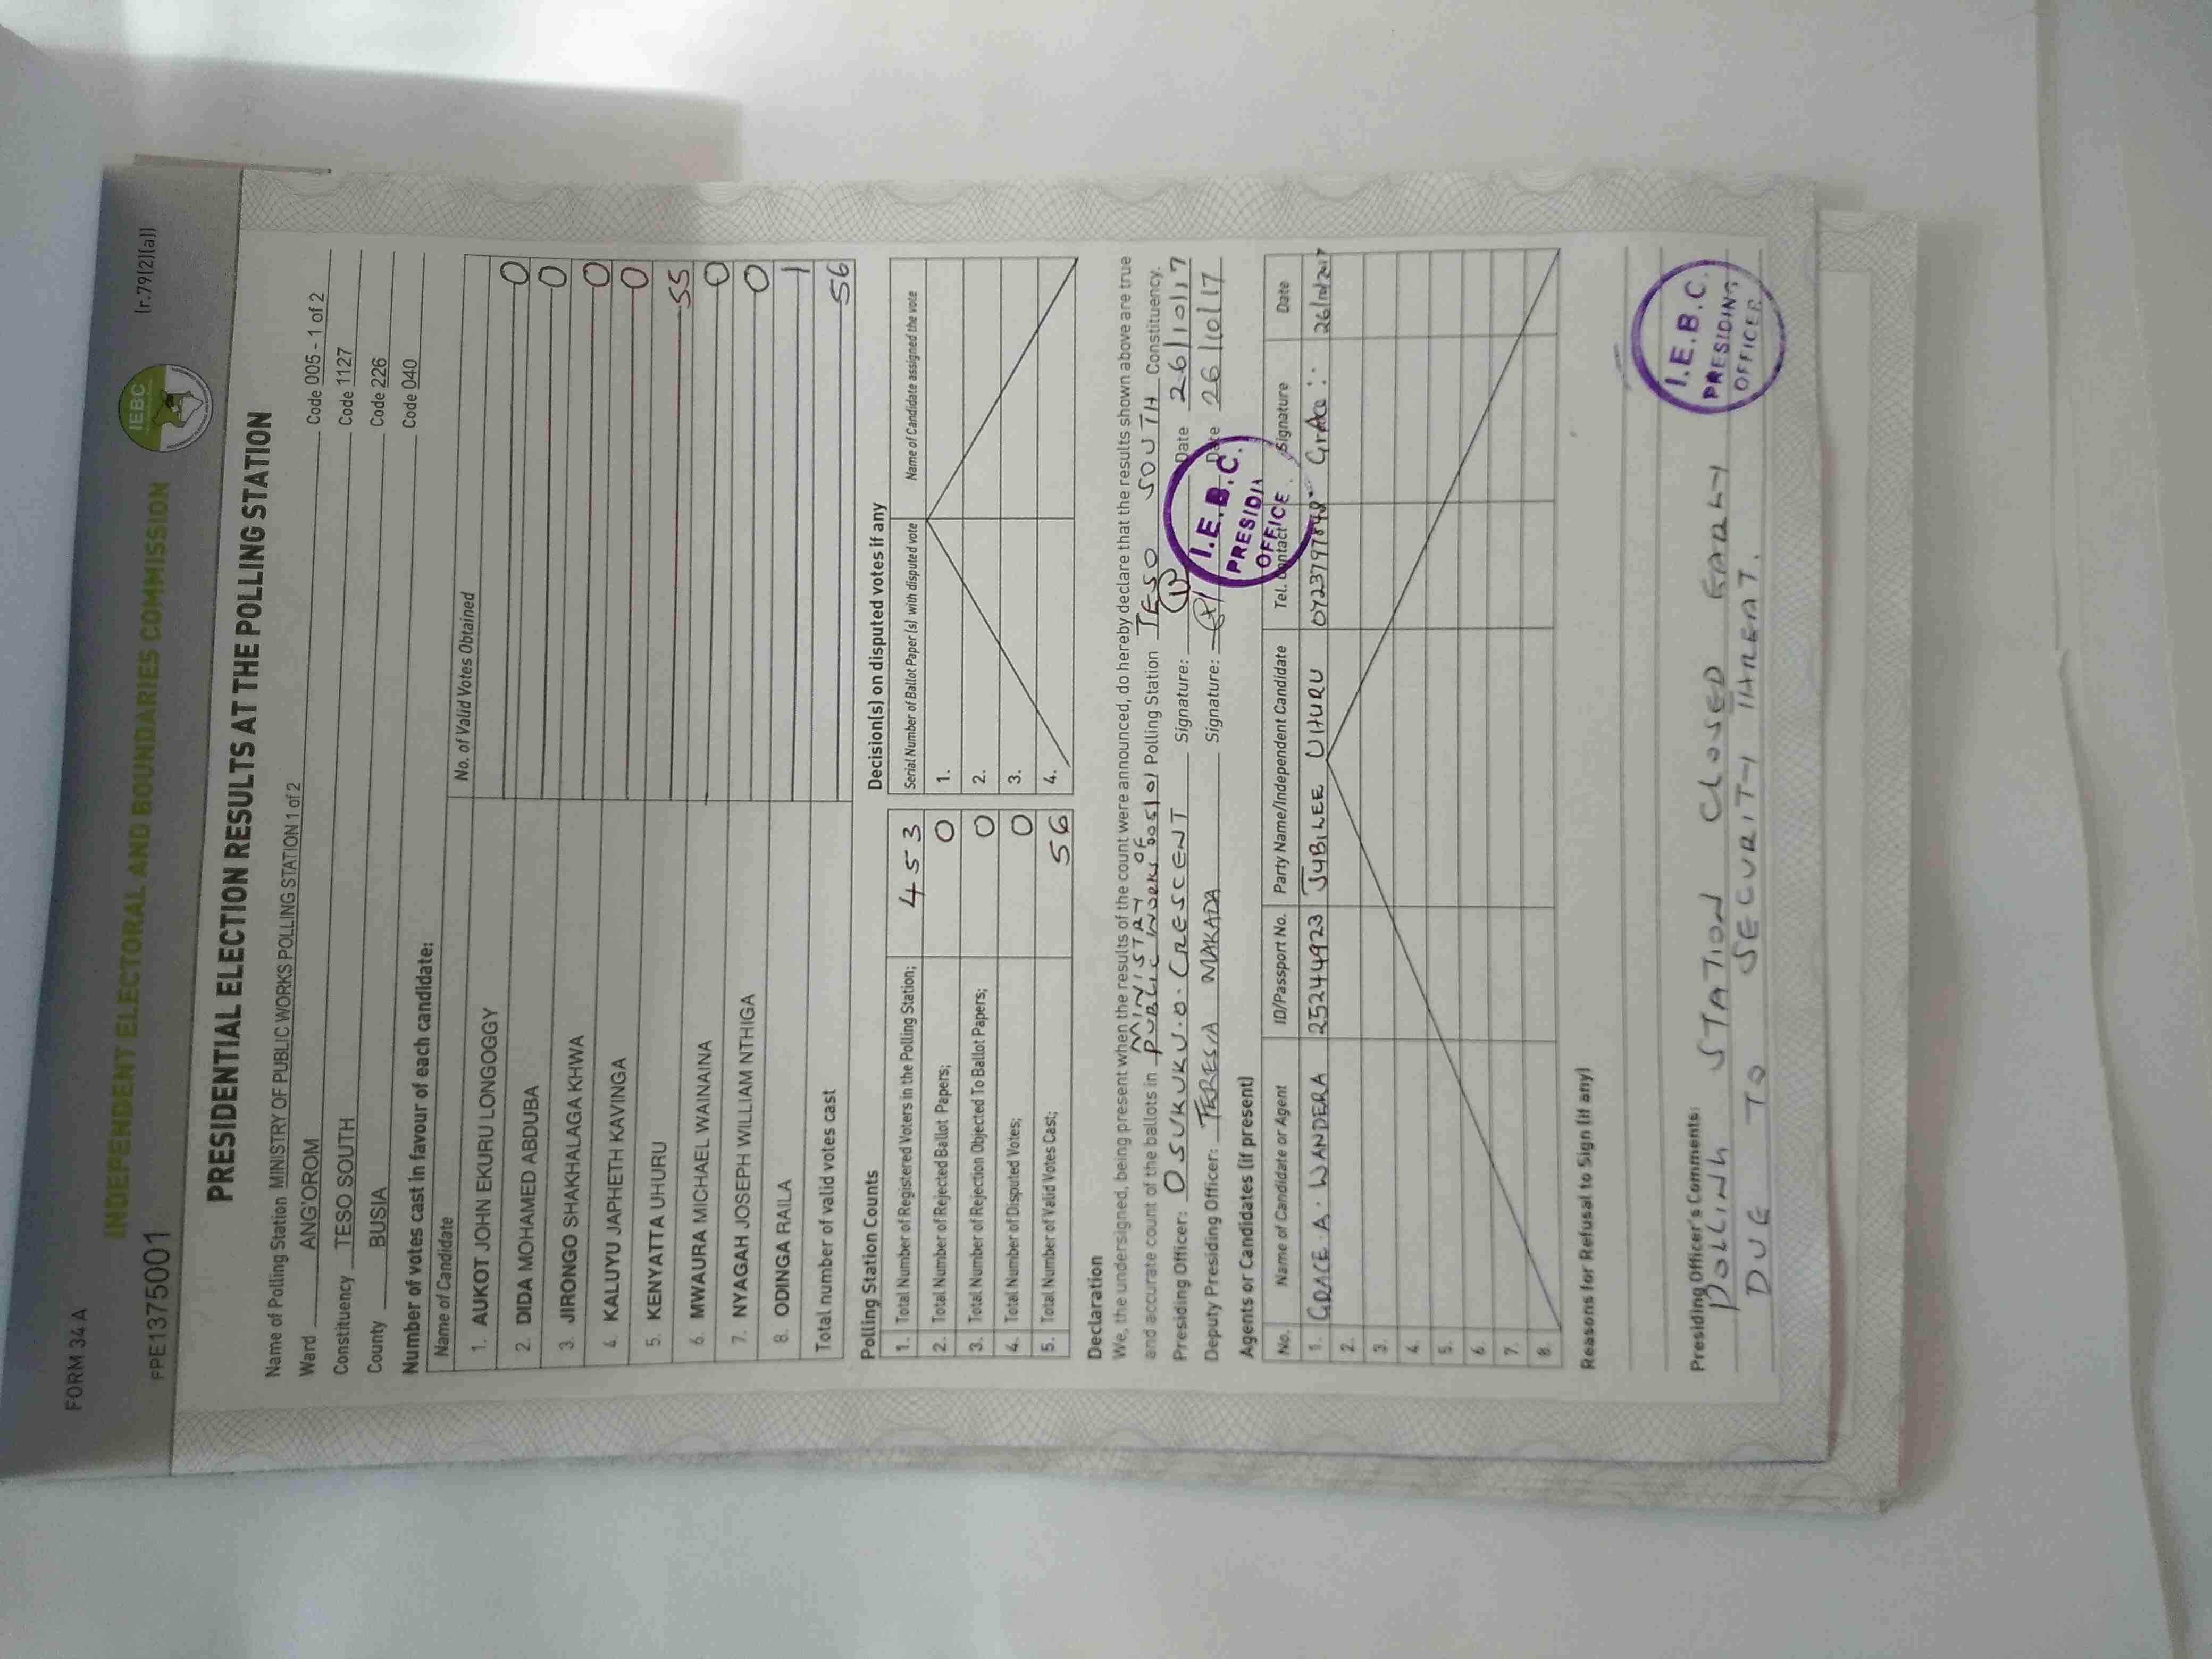 FORM 34 A
INDEPENDENT ELECTORAL AND BOUNDARIES COMMISSION
IEBC
(r.79(2)(a))
PPE1375001
PRESIDENTIAL ELECTION RESULTS AT THE POLLING STATION
Name of Polling Station MINISTRY OF PUBLIC WORKS POLLING STATION 1 of 2 Code 005 - 1 of 2
Ward ANG'OROM Code 1127
Constituency TESO SOUTH Code 226
County BUSIA Code 040
Number of votes cast in favour of each candidate:
Name of Candidate No. of Valid Votes Obtained
1. AUKOT JOHN EKURU LONGOGGY 0
2. DIDA MOHAMED ABDUBA 0
3. JIRONGO SHAKHALAGA KHWA 0
4. KALUYU JAPHETH KAVINGA 0
5. KENYATTA UHURU 55
6. MWAURA MICHAEL WAINAINA 0
7. NYAGAH JOSEPH WILLIAM NTHIGA 0
8. ODINGA RAILA 1
Total number of valid votes cast 56
Polling Station Counts
1. Total Number of Registered Voters in the Polling Station; 453
2. Total Number of Rejected Ballot Papers; 0
3. Total Number of Rejection Objected To Ballot Papers; 0
4. Total Number of Disputed Votes; 0
5. Total Number of Valid Votes Cast; 56
Decision(s) on disputed votes if any
Serial Number of Ballot Paper(s) with disputed vote Name of Candidate assigned the vote
1.
2.
3.
4.
Declaration
We, the undersigned, being present when the results of the count were announced, do hereby declare that the results shown above are true
and accurate count of the ballots in MINISTRY OF PUBLIC WORKS Polling Station TESO SOUTH Constituency.
Presiding Officer: OSUKUKU.O.CRESCENT Signature: Date 26/10/17
Deputy Presiding Officer: TERESIA MAKADA Signature: Date 26/10/17
I.E.B.C.
PRESIDI
OFFICE
Agents or Candidates (if present)
No. Name of Candidate or Agent ID/Passport No. Party Name/Independent Candidate Tel. Contact Signature Date
1. GRACE A. WANDERA 25244923 JUBILEE UHURU Grace 26/10/2017
2.
3.
4.
5.
6.
7.
8.
Reasons for Refusal to Sign (if any)
Presiding Officer's Comments:
POLLING STATION CLOSED EARLY
DUE TO SECURITY THREAT.
I.E.B.C.
PRESIDING
OFFICER